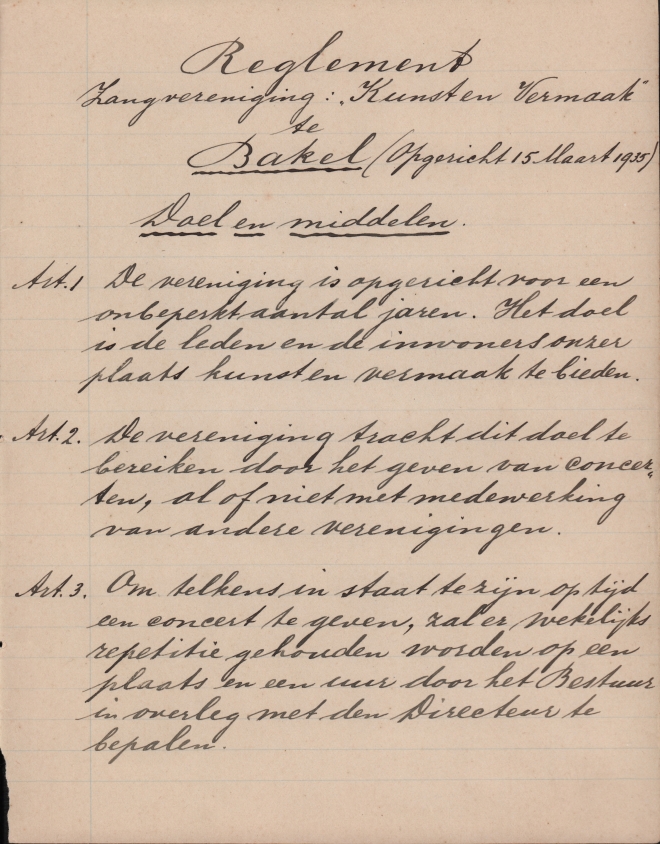 Reglement
Zangvereniging: „Kunst en Vermaak"
te
Bakel (Opgericht 15 Maart 1935)
Doel en middelen.
Art. 1 De vereniging is opgericht voor een
onbeperkt aantal jaren. Het doel
is de leden en de inwoners onzer
plaats kunst en vermaak te bieden.
Art. 2. De vereniging tracht dit doel te
bereiken door het geven van concer„
ten, al of niet met medewerking
van andere verenigingen.
Art. 3. Om telkens in staat te zijn op tijd
een concert te geven, zal er wekelijks
repetitie gehouden worden op een
plaats en een uur door het Bestuur
in overleg met den Directeur te
bepalen.